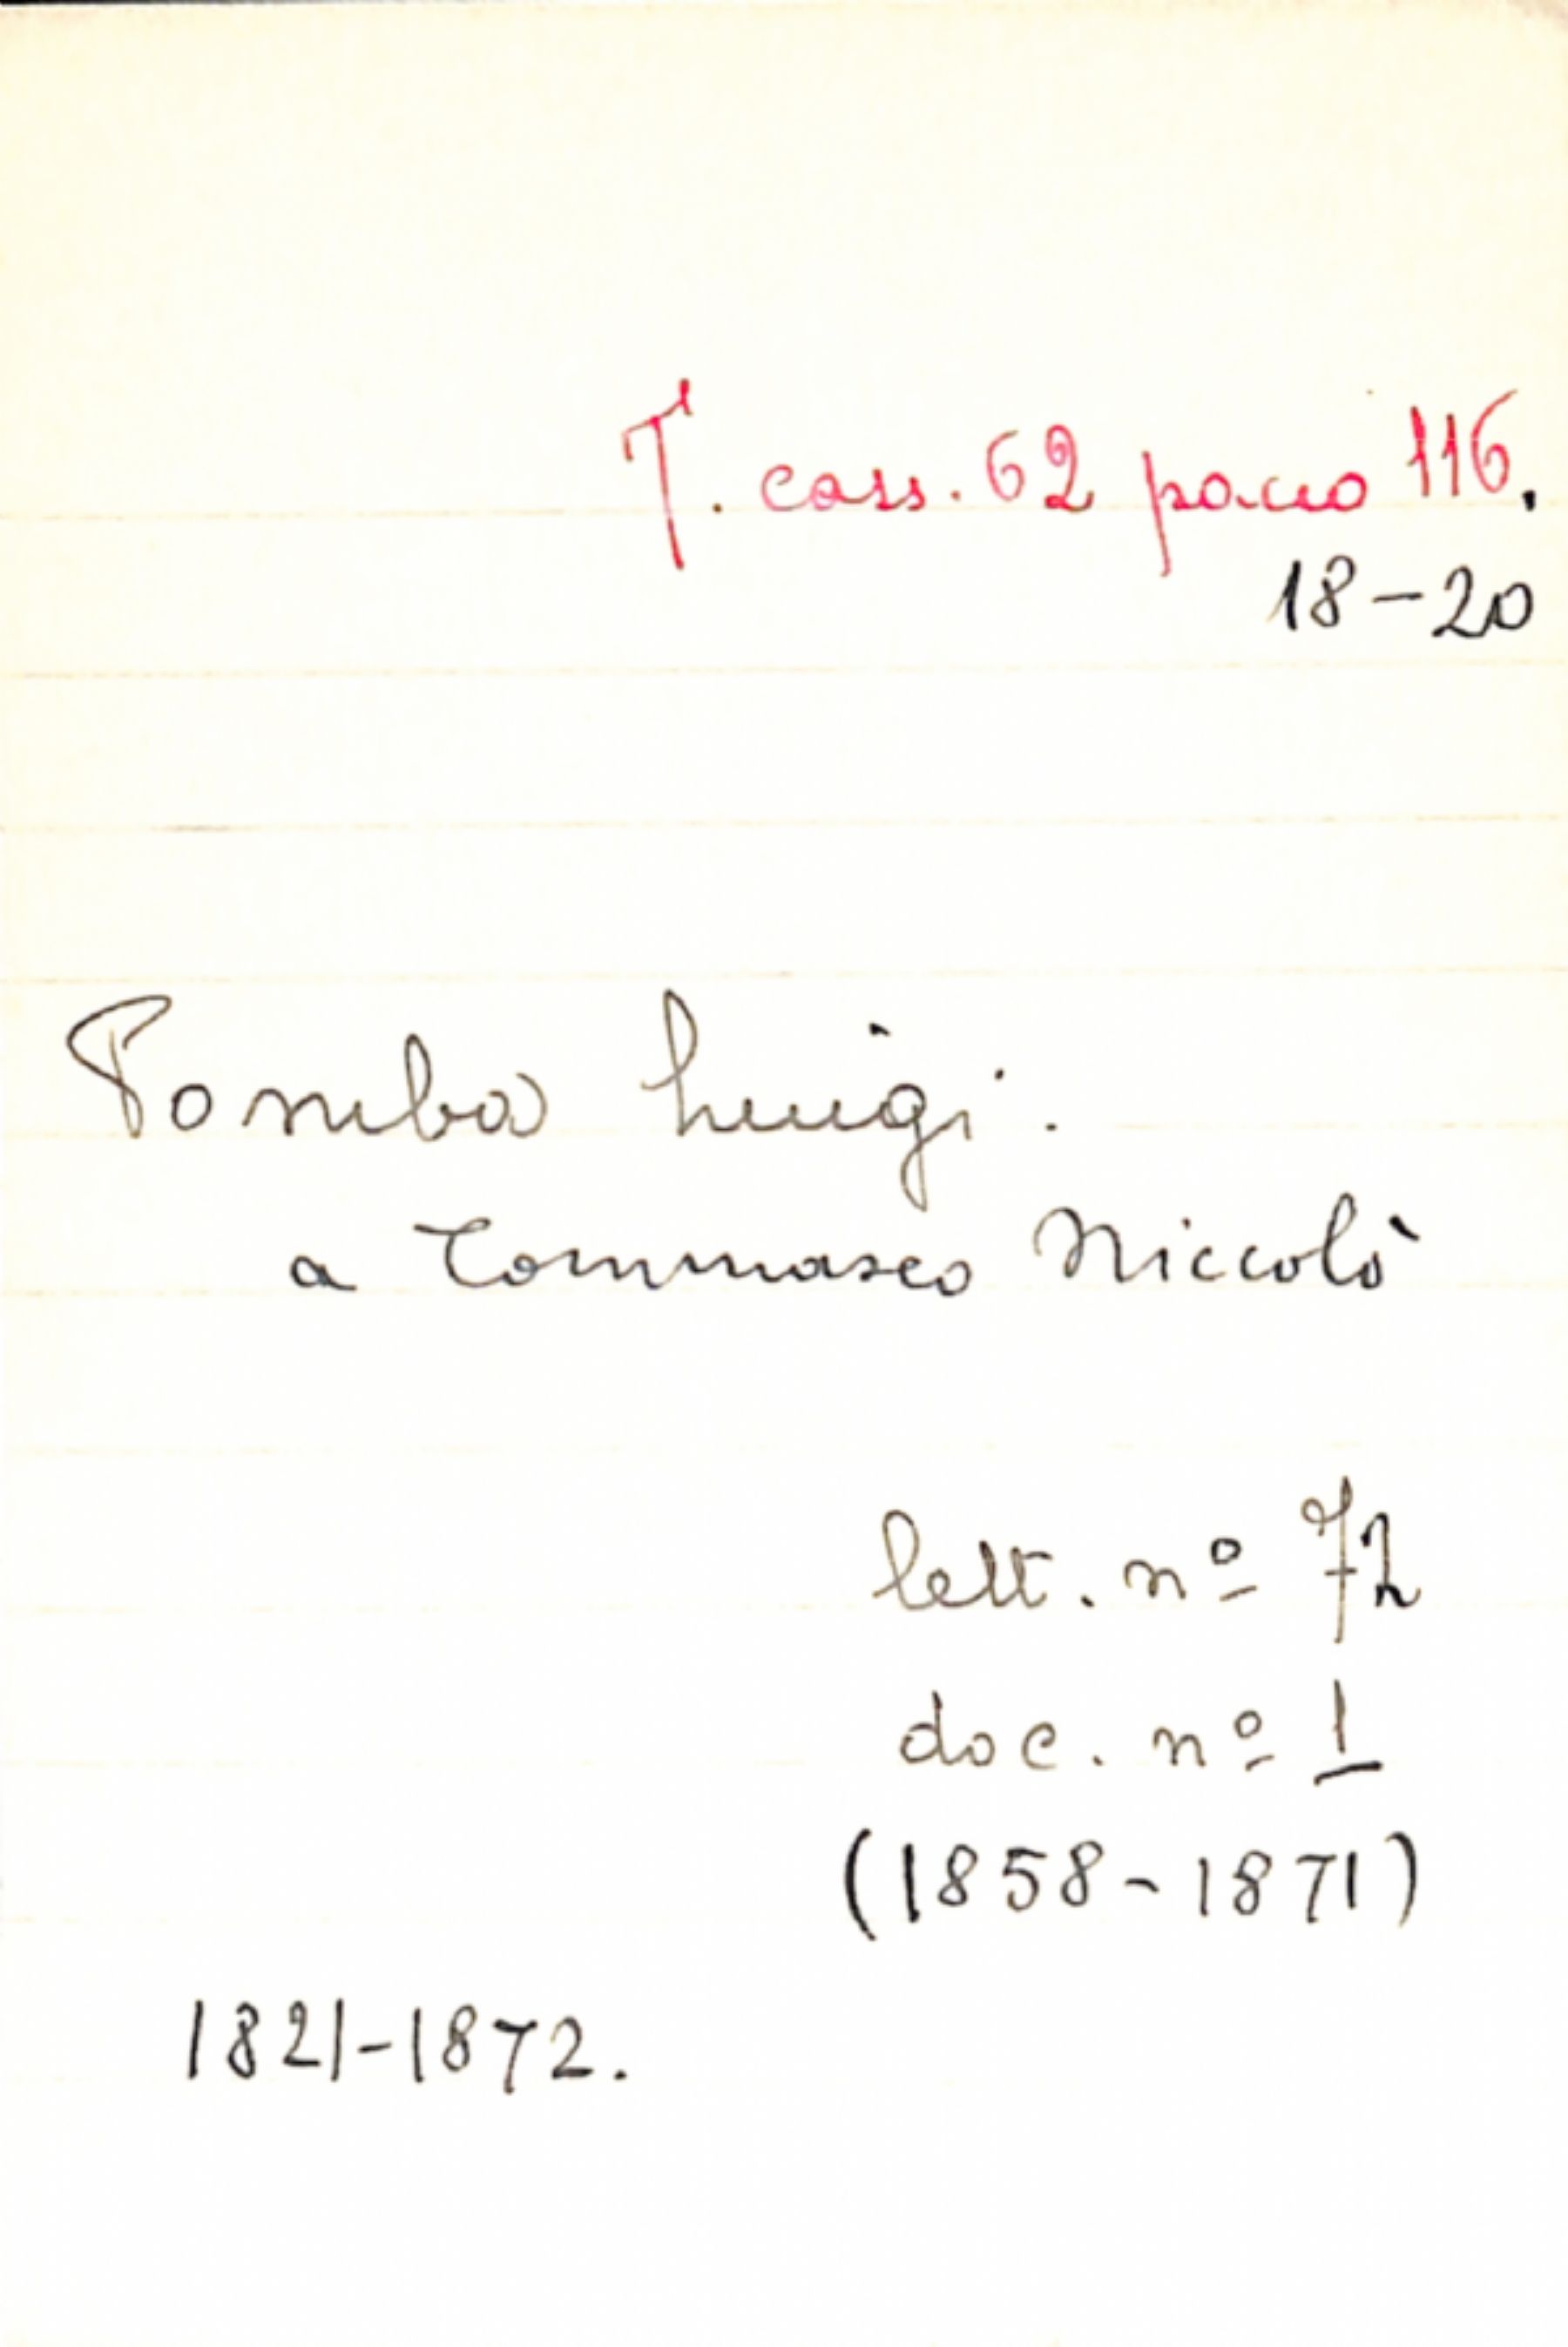 T. cass. 62 pacco 116.
18-20
Pomba Luigi.
a Tommaseo Niccolò
lett. nº 72
doc. nº 1
(1858-1871)
1821-1872.